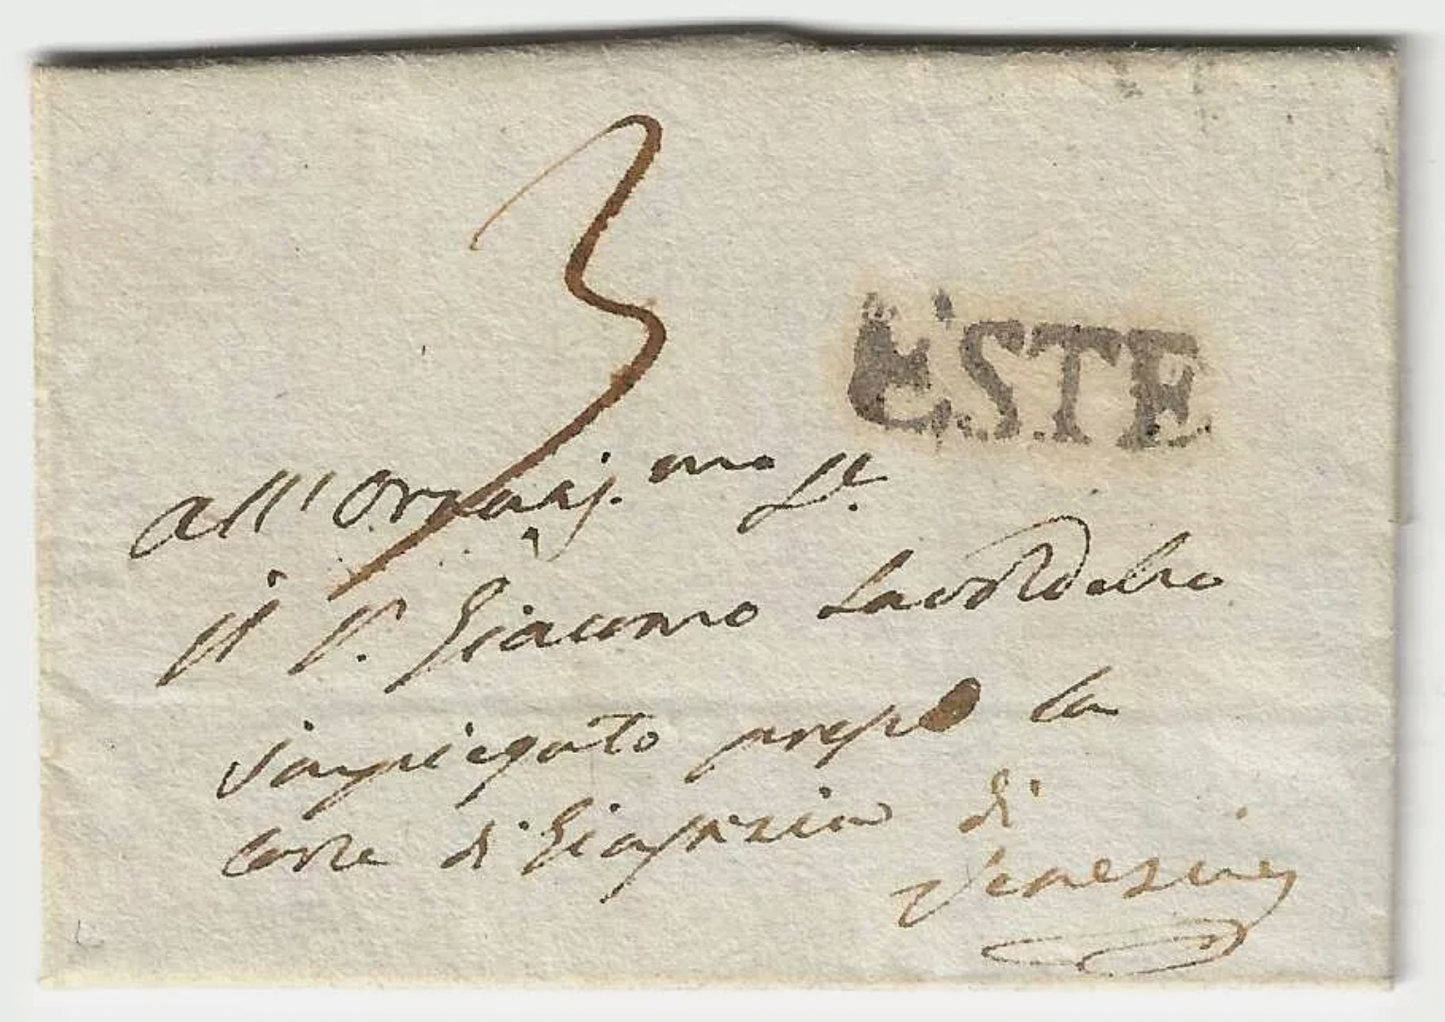 3
ESTE
All' Ornatis.mo Sr.
il Sr. Giacomo
impiegato presso la
Corte di Giustizia di
Venezia